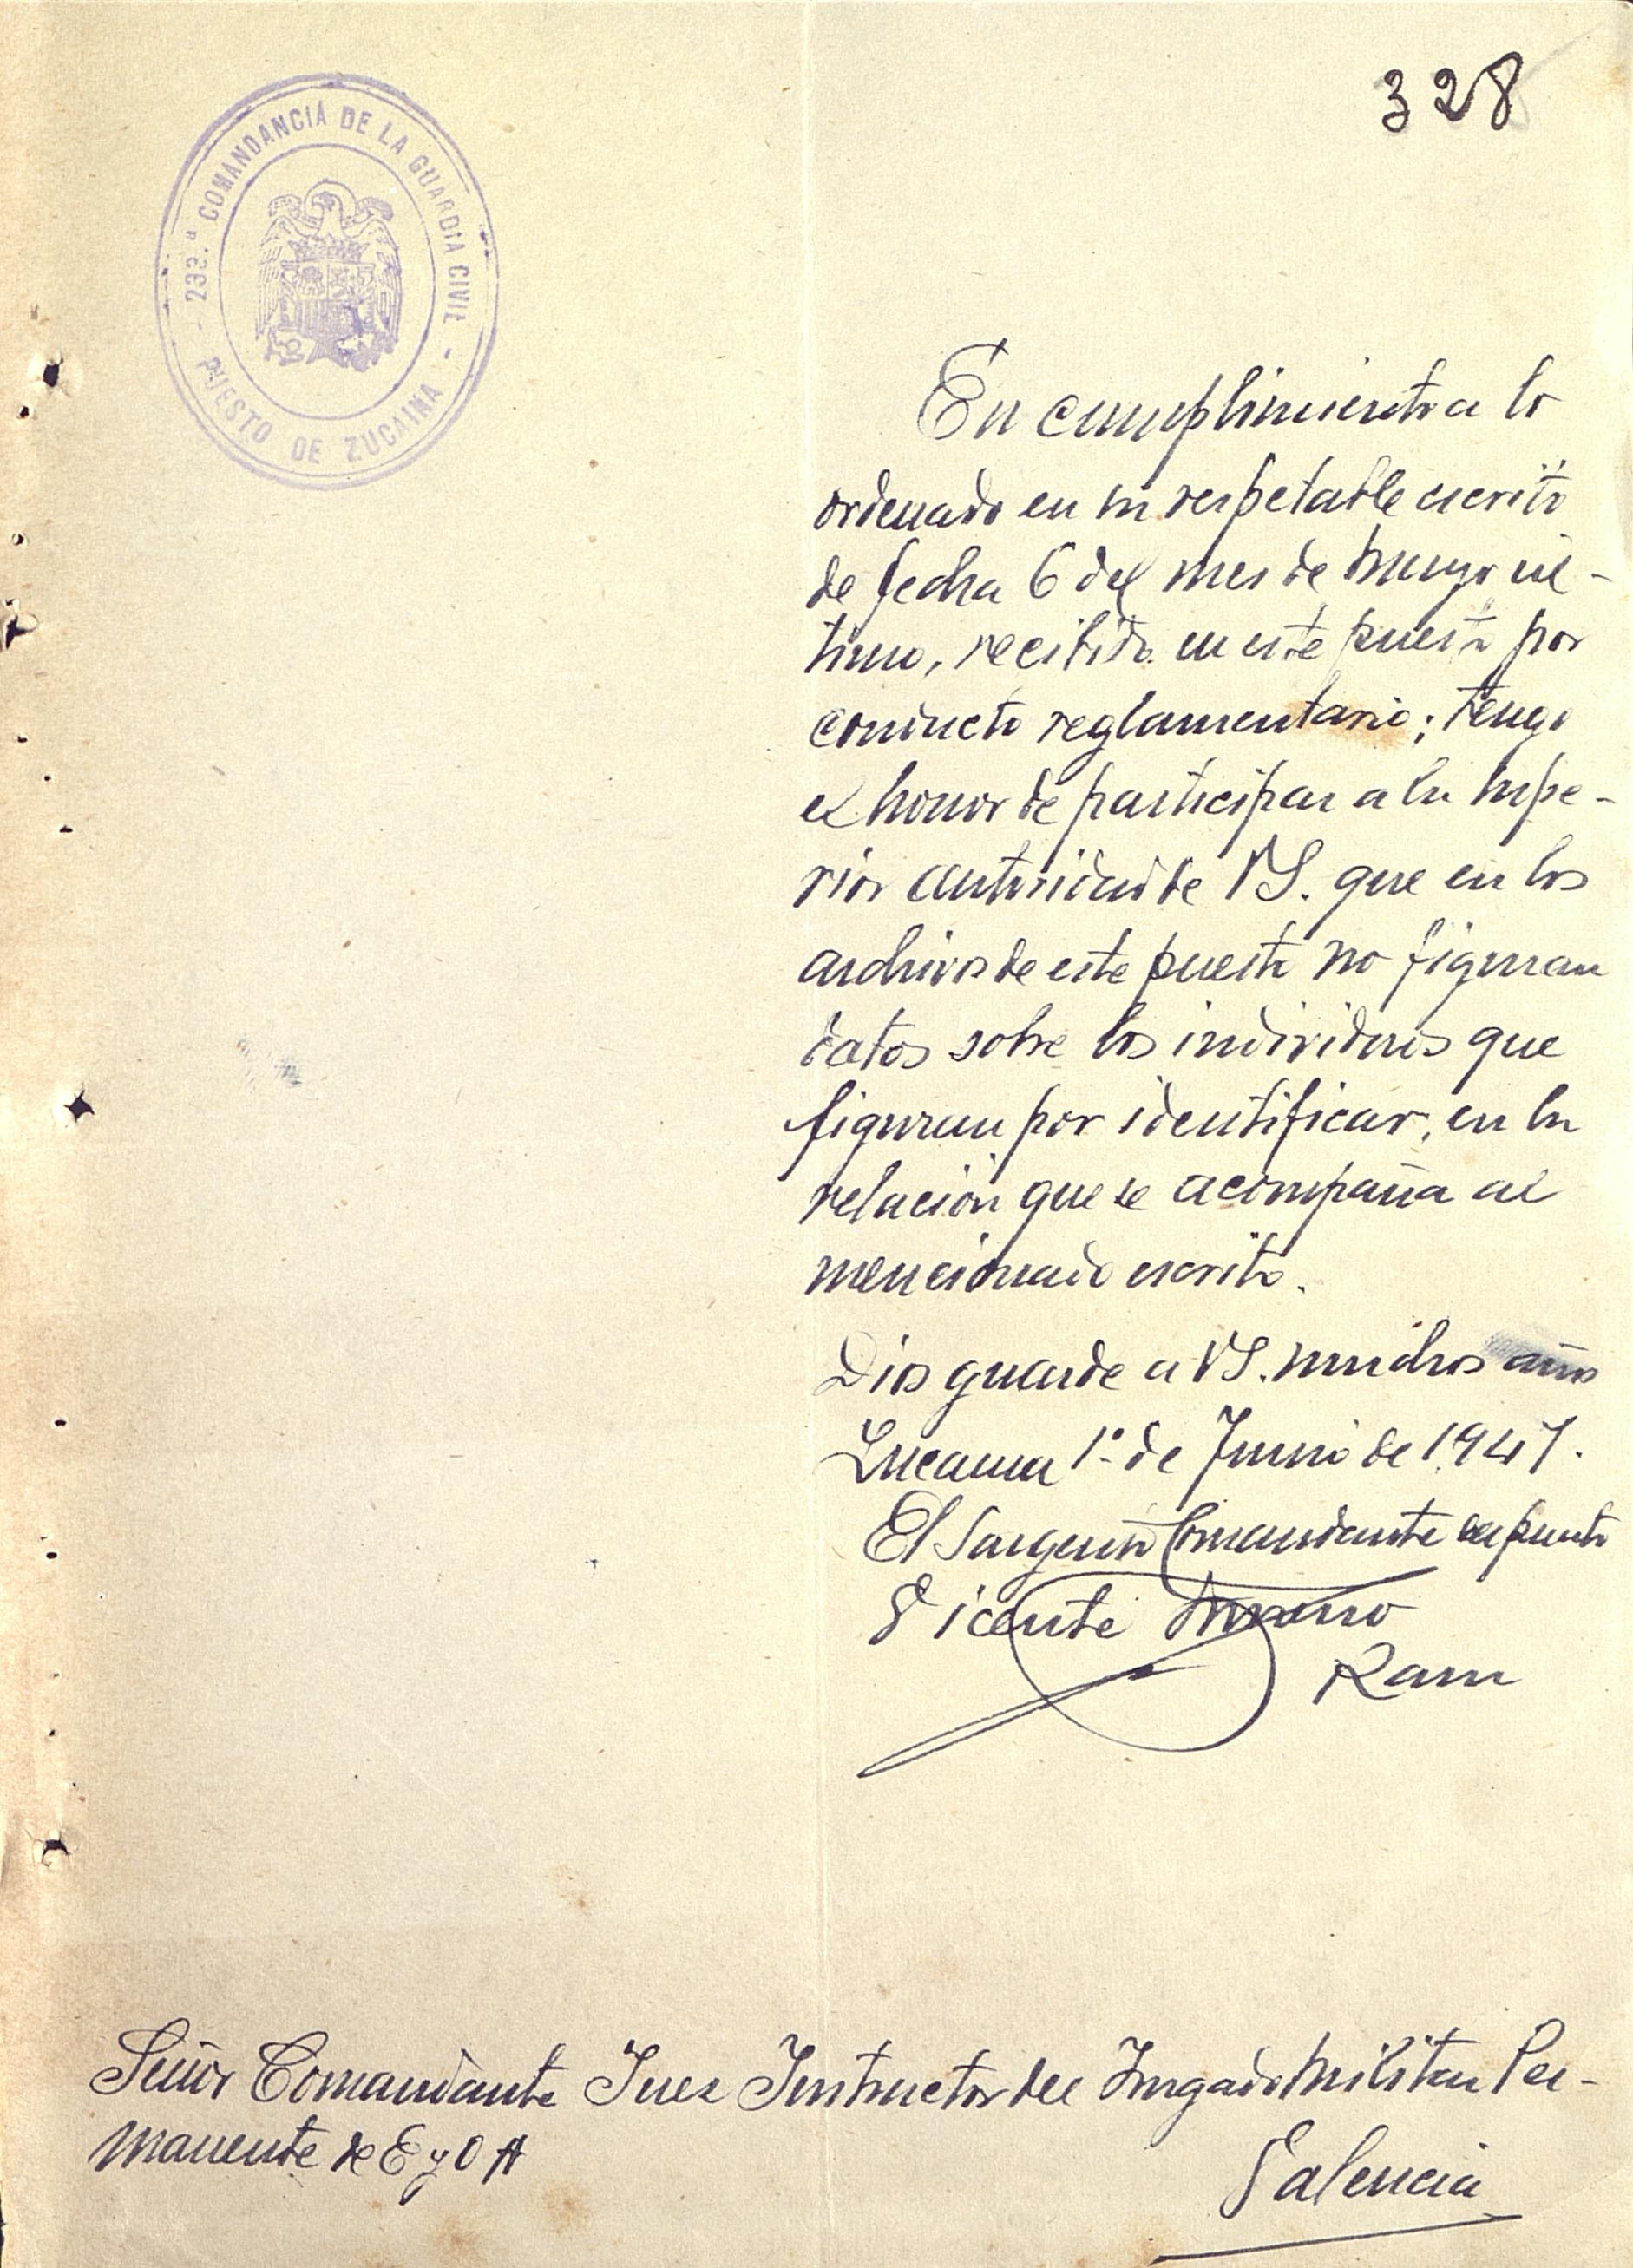 328
233.ª COMANDANCIA DE LA GUARDIA CIVIL
PUESTO DE ZUCAINA
En cumplimiento a lo
ordenado en su respetable escrito
de fecha 6 del mes de Mayo úl-
timo, recibido en este puesto por
conducto reglamentario; tengo
el honor de participar a la Supe-
rior autoridad de VS. que en los
archivos de este puesto no figuran
datos sobre los individuos que
figuran por identificar, en la
relación que se acompaña al
mencionado escrito.
Dios guarde a VS. muchos años
Zucaina 1º de Junio de 1947.
El Sargento Comandante del puesto
Vicente Moreno
Ram
Señor Comandante Juez Instructor del Juzgado Militar Per-
manente de E y O A
Valencia